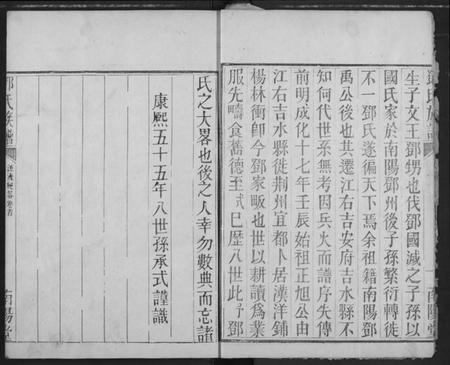 鄧氏族譜
生子文王鄧甥也伐鄧國滅之子孫以
國氏家於南陽鄧州後子孫繁衍轉徙
不一鄧氏遂徧天下焉余祖籍南陽鄧
禹公後也其遷江右吉安府吉水縣不
知何代世系無考因兵火而譜序失傳
前明成化十七年壬辰始祖正旭公由
江右吉水縣徙荆州宜都卜居漢洋鋪
楊林衝卽今鄧家畈也世以耕讀為業
服先疇食舊德至式巳歷八世此予鄧
南陽堂
氏之大畧也後之人幸勿數典而忘諸
康熙五十五年八世孫承式謹識
鄧氏族譜
卷首
南陽堂